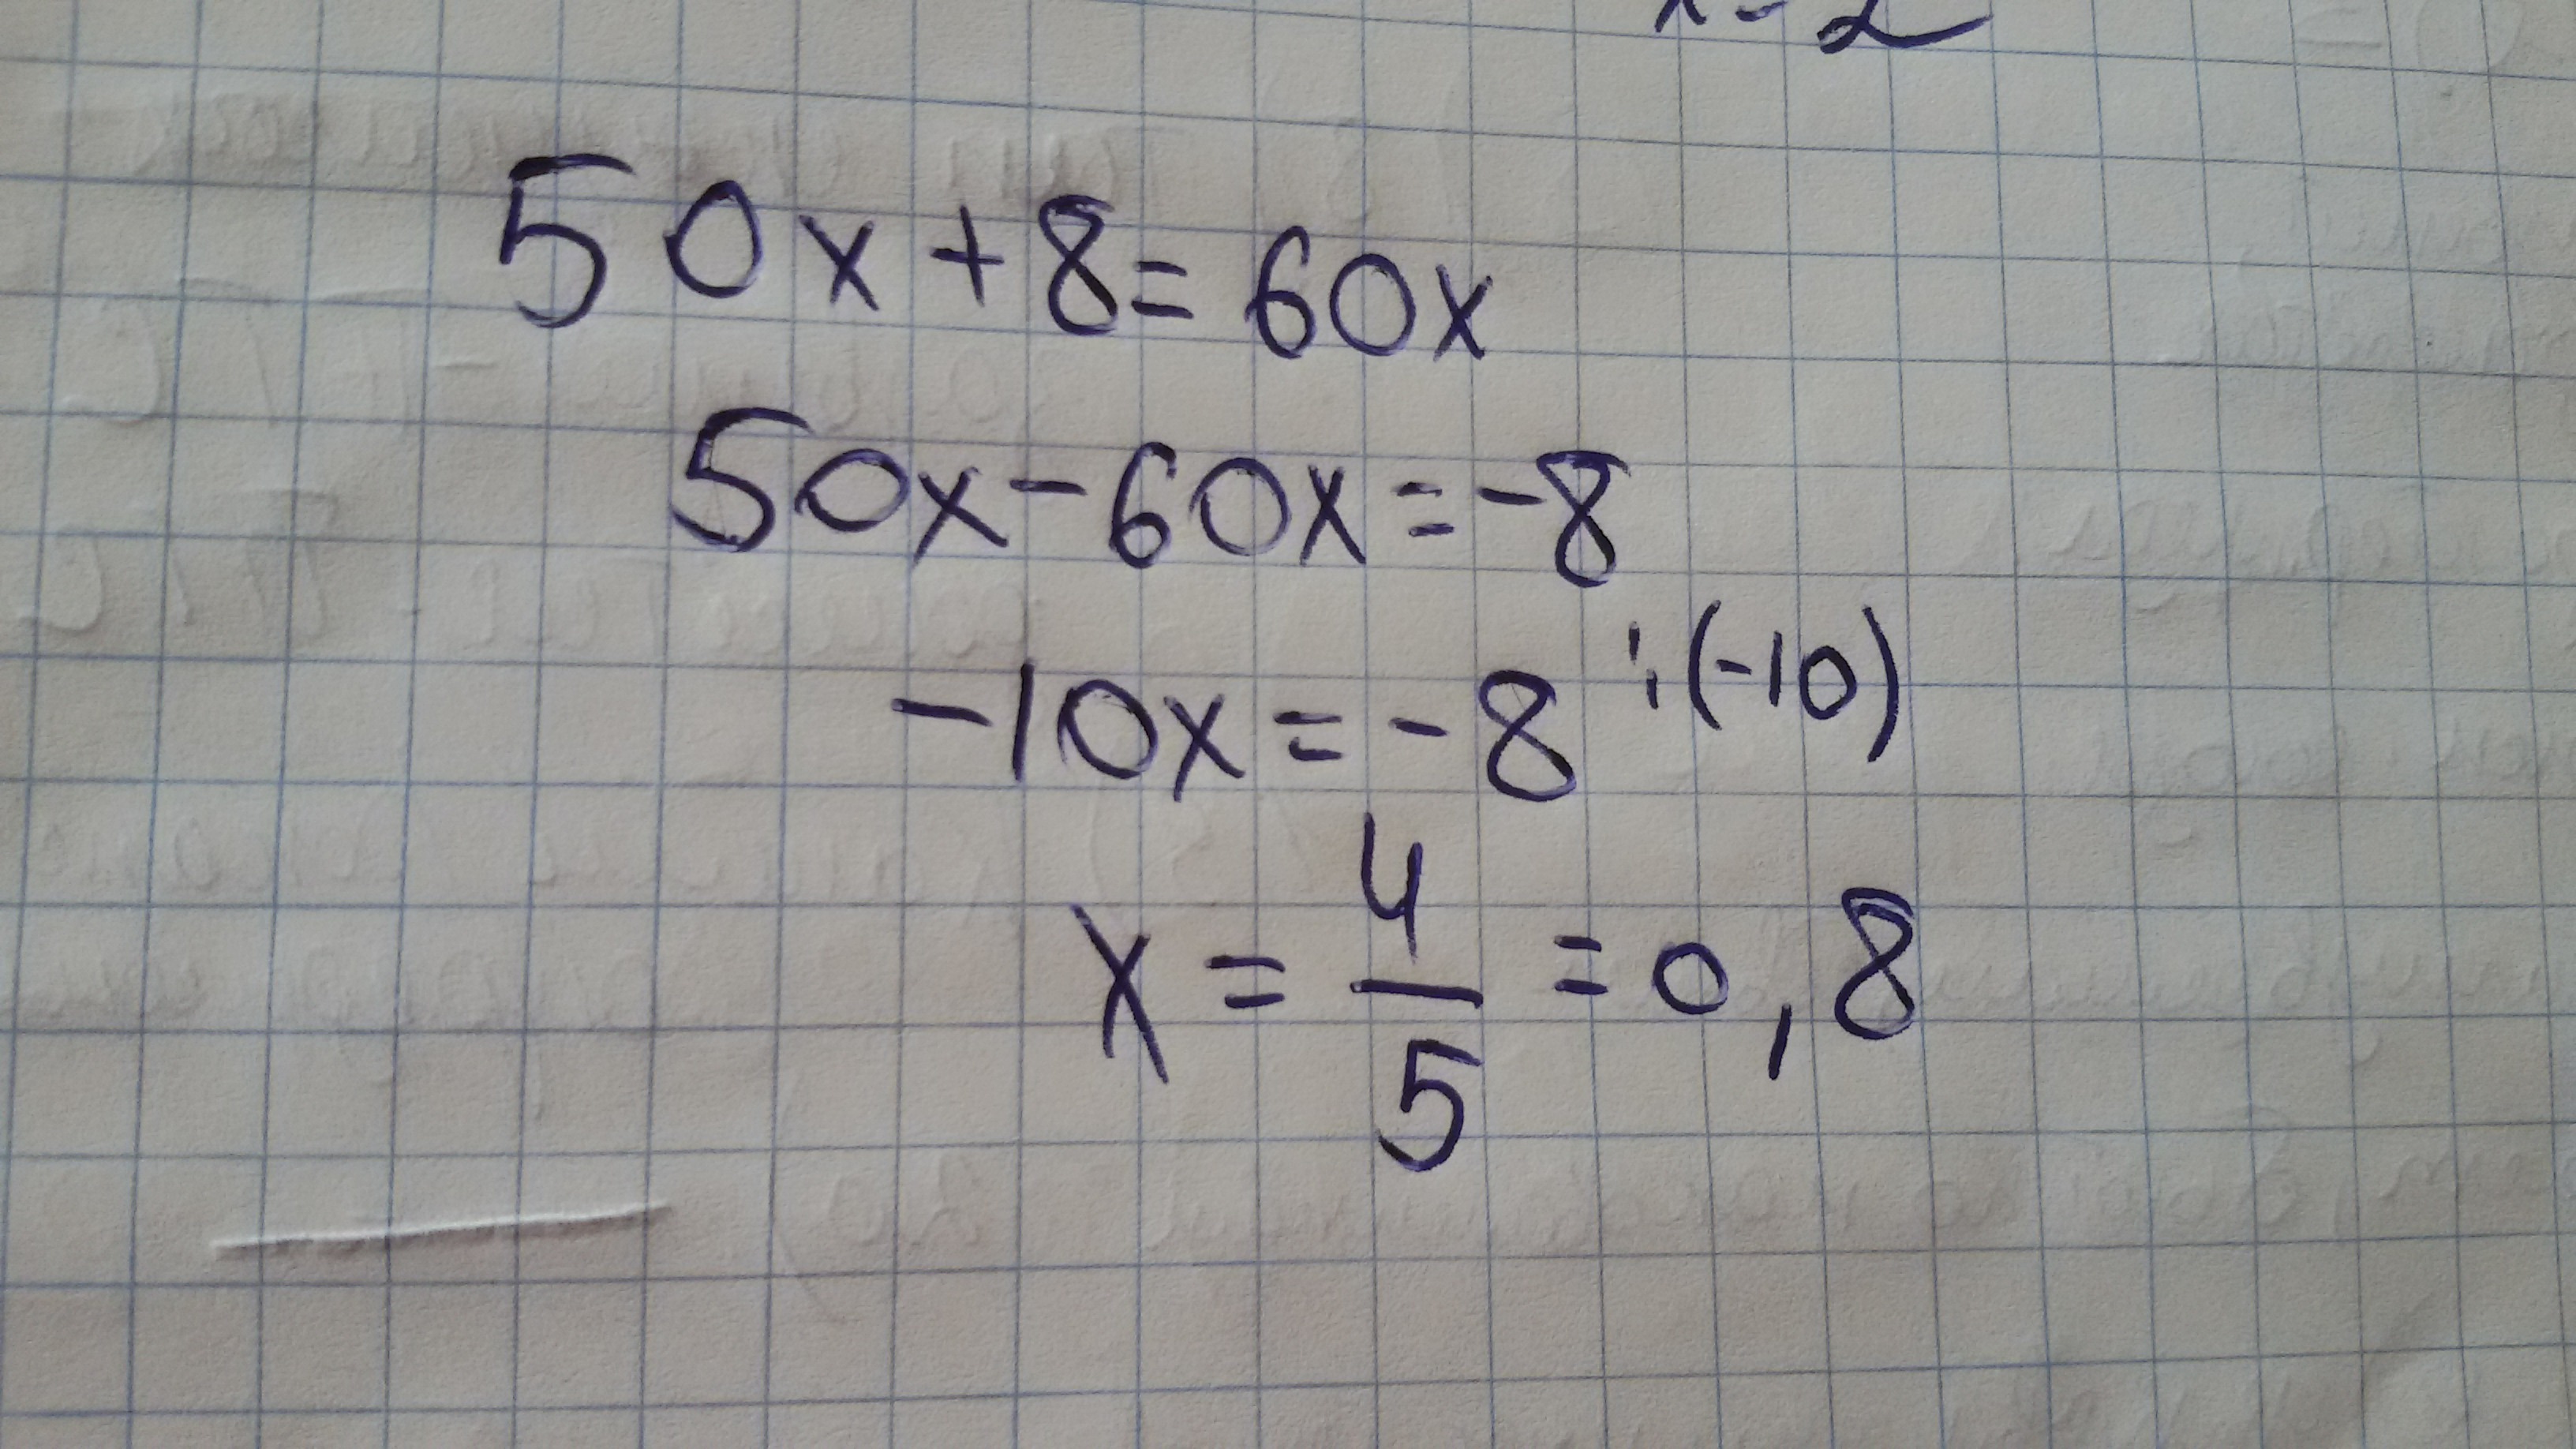 50x+8=60x
50x-60x=-8
-10x=-8 :(-10)
x=4/5=0,8